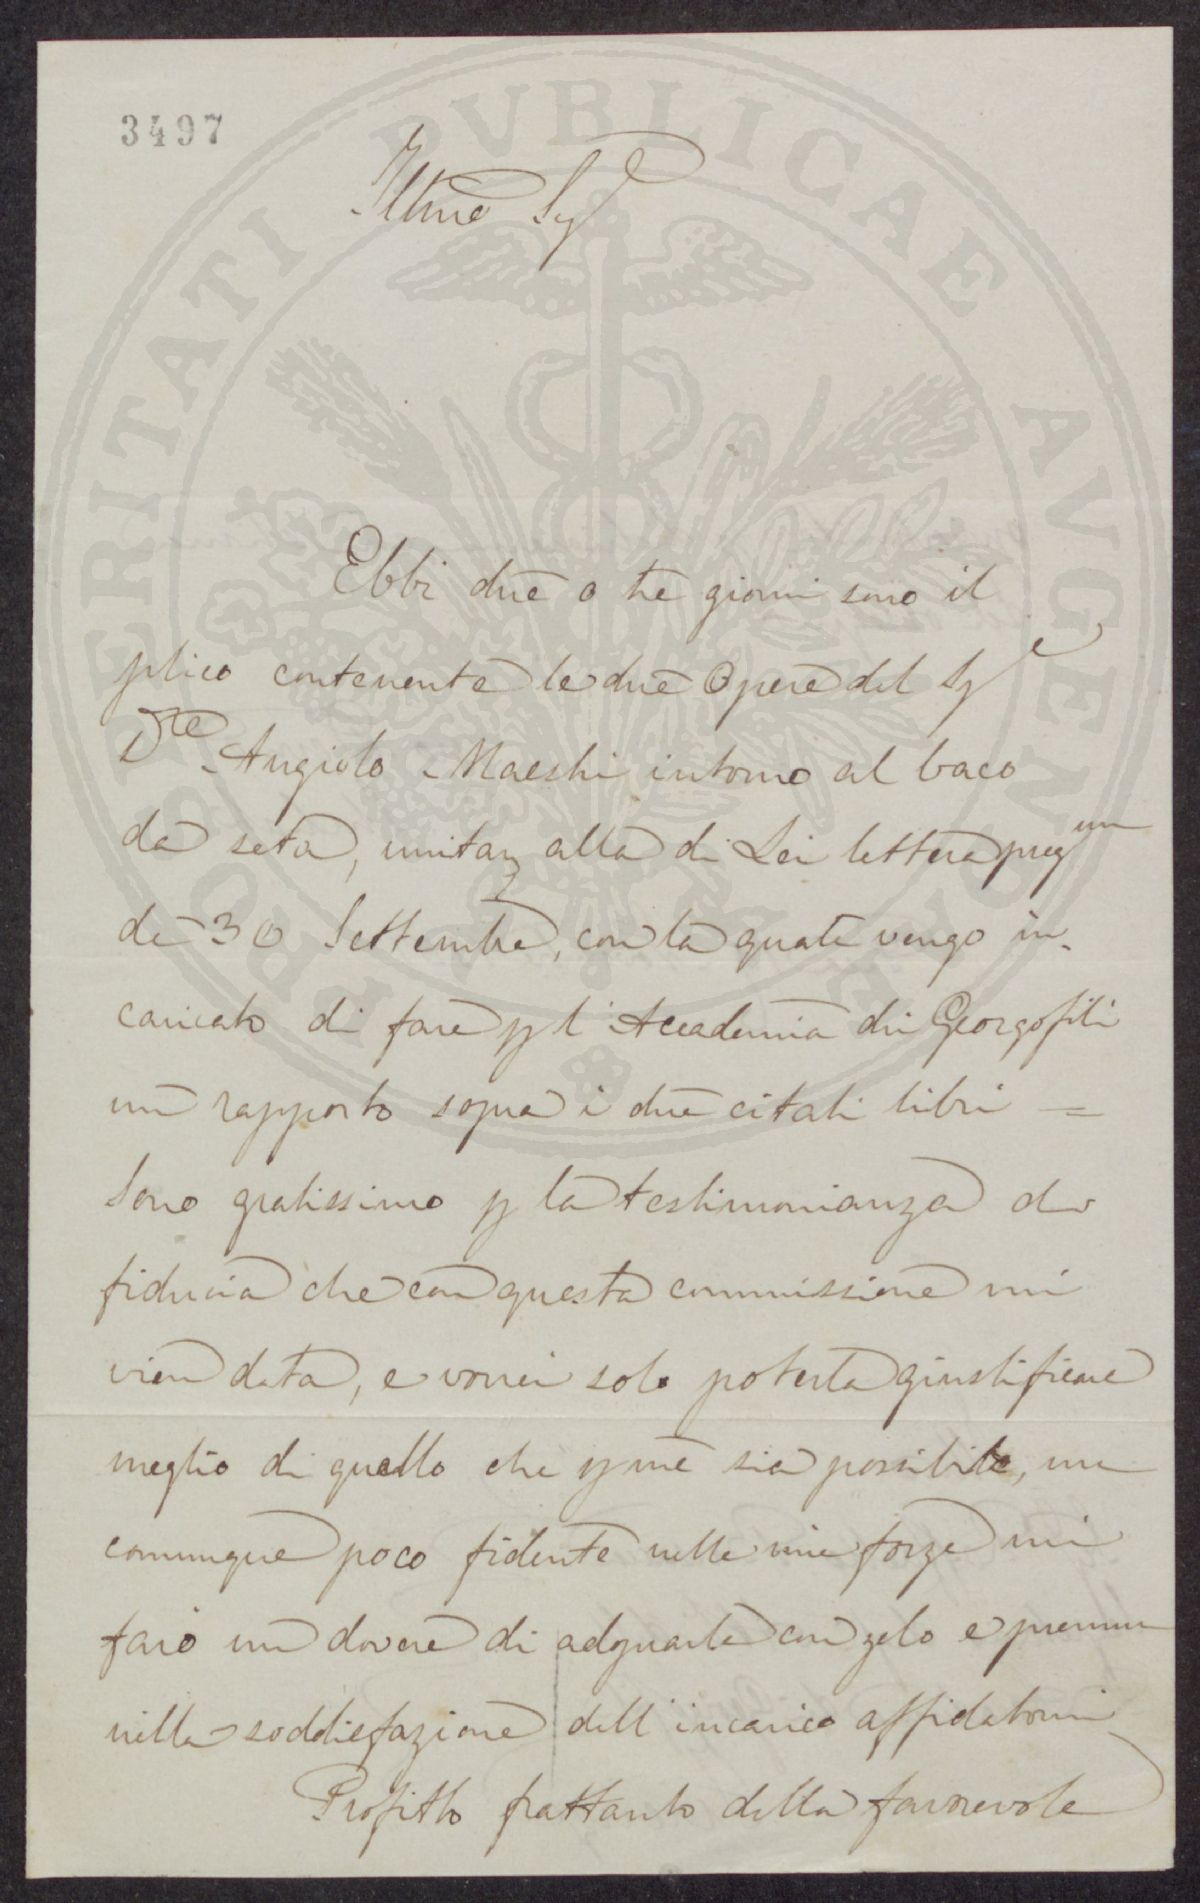 3497
Illmo Sigre
Ebbi due o tre giorni sono il
plico contenente le due Opere del Sigre
Dre Angiolo Maestri intorno al baco
da seta, unitam alla di Lei lettera pregma
de 30 Settembre, con la quale vengo in-
caricato di fare p l'Accademia dei Georgofili
un rapporto sopra i due citati libri =
Sono gratissimo p la testimonianza di
fiducia che con questa commissione mi
vien data, e vorrei solo poterla giustificare
meglio di quello che p me sia possibile, ma
comunque poco fidente nelle mie forze mi
farò un dovere di adoprarle con zelo e premura
nella soddisfazione dell'incarico affidatomi
Profitto frattanto della favorevole
PROSPERITATI PVBLICAE AVGENDAE